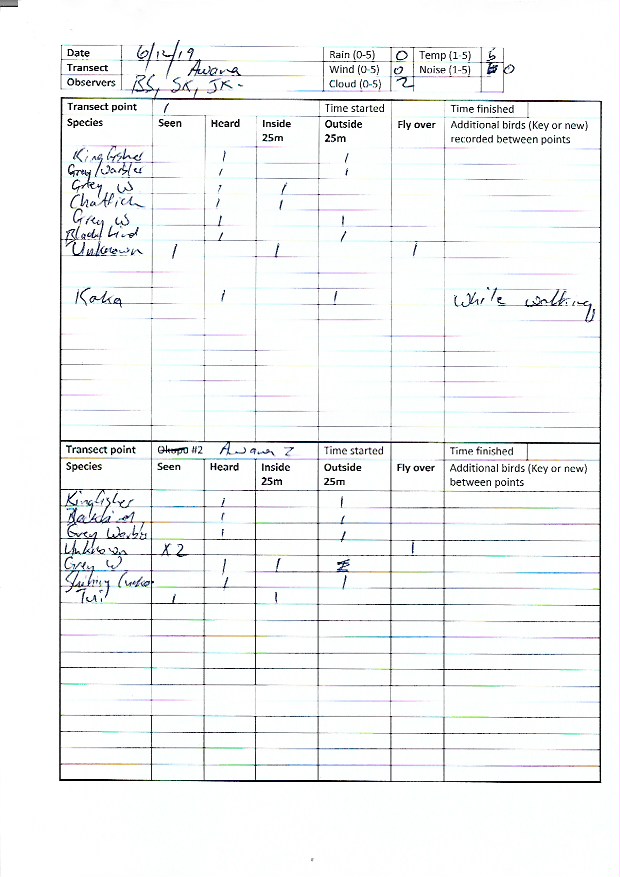 Date 6/12/19 Rain (0-5) 0 Temp (1-5) 5
Transect Awana Wind (0-5) 0 Noise (1-5) 0
Observers BS, SK, JK. Cloud (0-5) 2
Transect point 1 Time started Time finished
Species Seen Heard Inside 25m Outside 25m Fly over Additional birds (Key or new) recorded between points
Kingfisher 1 1
Grey Warbler 1 1
Grey W 1 1
Chaffich 1 1
Grey W 1 1
Black bird 1 1
Unknown 1 1 1
Kaka 1 1 While walking
Transect point Okupo #2 Awana 2 Time started Time finished
Species Seen Heard Inside 25m Outside 25m Fly over Additional birds (Key or new) between points
Kingfisher 1 1
1 1
Grey Warbler 1 1
Unknown X2 1
Grey W 1 1
Shining Cuckoo 1 1
Tui 1 1